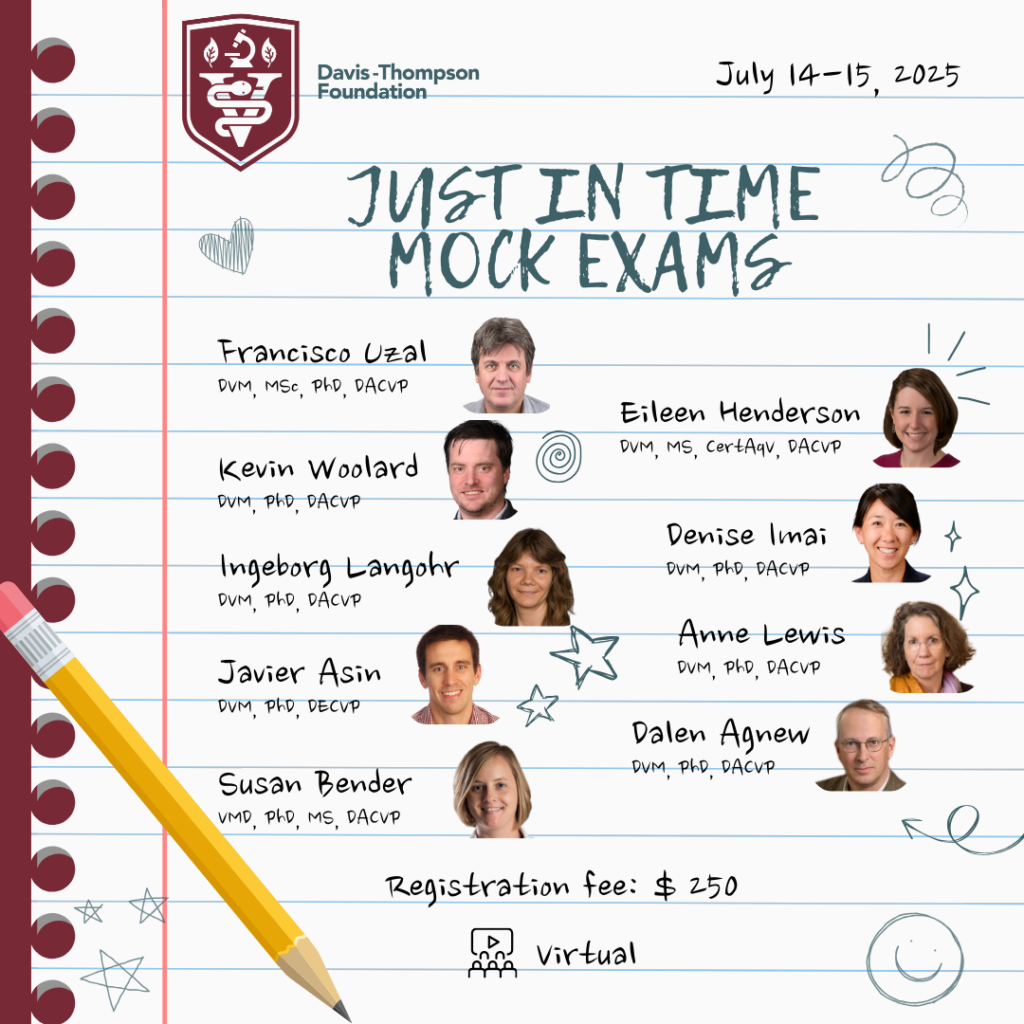 Davis-Thompson
Foundation
July 14-15, 2025
JUST IN TIME
MOCK EXAMS
Francisco Uzal
DVM, MSc, PhD, DACVP
Kevin Woolard
DVM, PhD, DACVP
Ingeborg Langohr
DVM, PhD, DACVP
Javier Asin
DVM, PhD, DECVP
Susan Bender
VMD, PhD, MS, DACVP
Eileen Henderson
DVM, MS, CertAqV, DACVP
Denise Imai
DVM, PhD, DACVP
Anne Lewis
DVM, PhD, DACVP
Dalen Agnew
DVM, PhD, DACVP
Registration fee: $ 250
Virtual